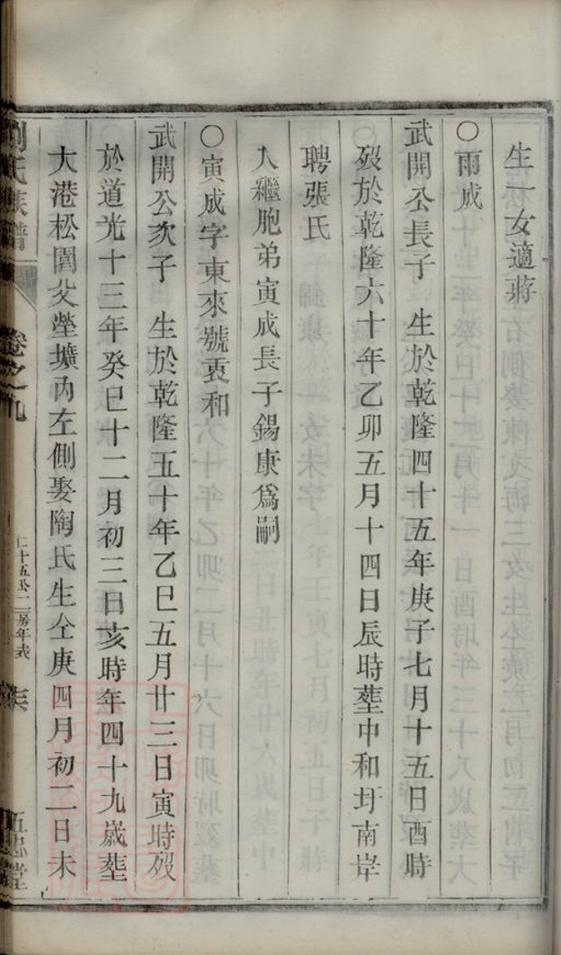 生一女適蔣
○雨成
武開公長子　生於乾隆四十五年庚子七月十五日酉時
歿於乾隆六十年乙卯五月十四日辰時塟中和圩南岸
聘張氏
入繼胞弟寅成長子錫康爲嗣
○寅成字東來號衷和
武開公次子　生於乾隆五十年乙巳五月廿三日寅時歿
於道光十三年癸巳十二月初三日亥時年四十九歲塟
大港松園父塋壙內左側娶陶氏生仝庚四月初二日未
劉氏族譜　卷之九　仁十五公二房年表　五忠堂